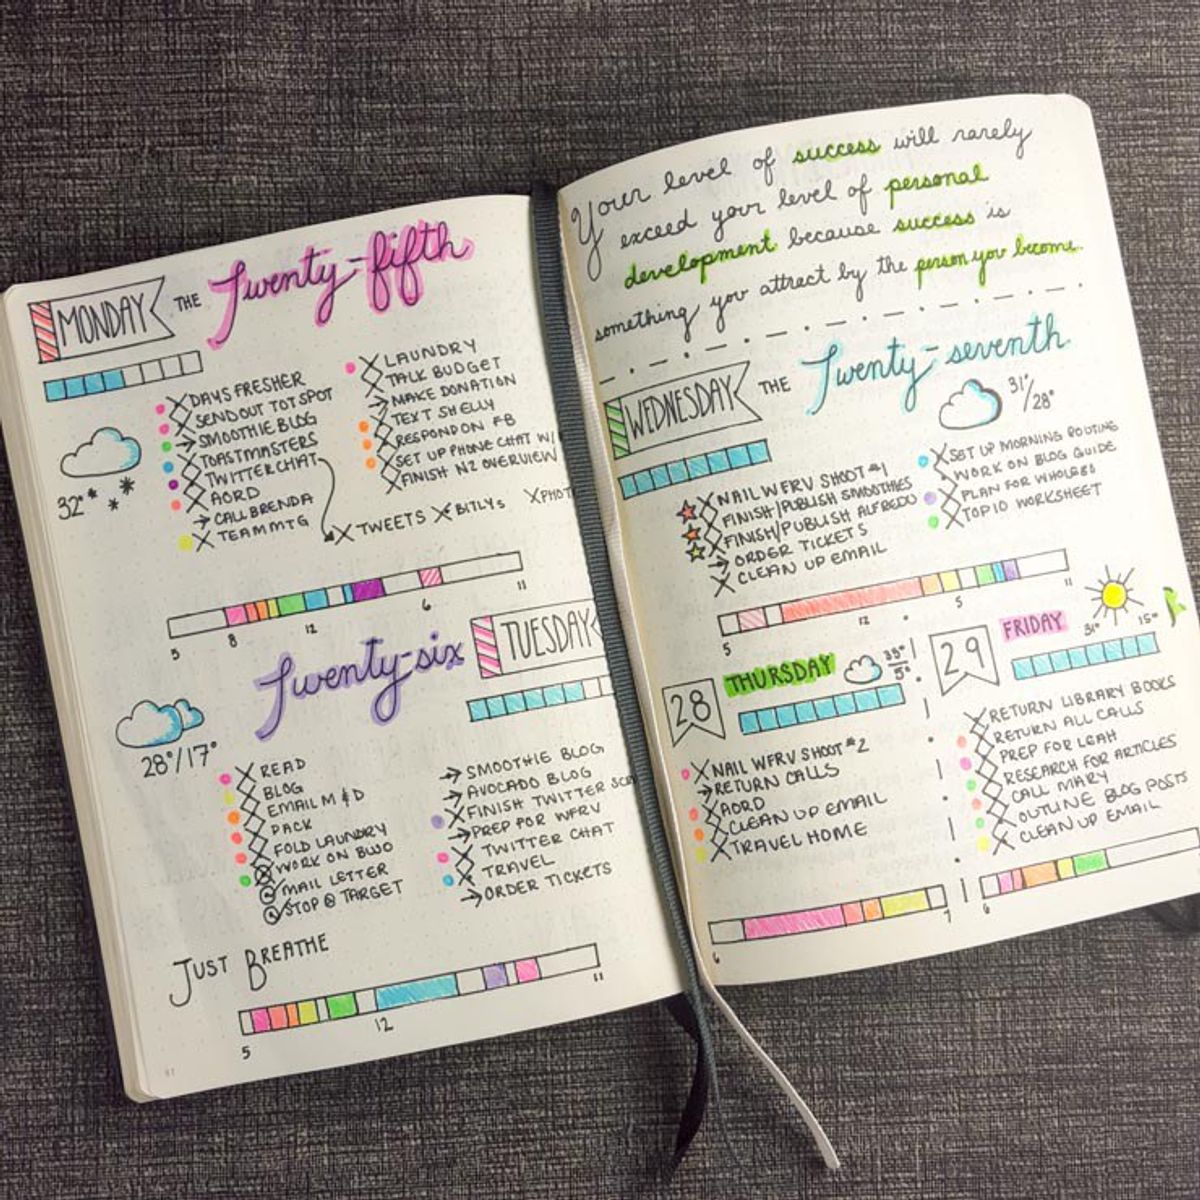 MONDAY THE Twenty-fifth
X DAYS FRESHER
X SEND OUT TOTSPOT
→ SMOOTHIE BLOG
X TOASTMASTERS
X TWITTER CHAT
X AORD
→ CALL BRENDA
X TEAM MTG
X LAUNDRY
X TALK BUDGET
→ MAKE DONATION
X TEXT SHELLY
X RESPOND ON FB
X SET UP PHONE CHAT W/
X FINISH N2 OVERVIEW
X TWEETS X BITLYS X PHOT
32°
5 8 12 6 11
Twenty-six TUESDAY
28°/17°
X READ
X BLOG
X EMAIL M & D
X PACK
X FOLD LAUNDRY
X WORK ON BWO
MAIL LETTER
STOP @ TARGET
→ SMOOTHIE BLOG
→ AVOCADO BLOG
X FINISH TWITTER
→ PREP FOR WFRV
X TWITTER CHAT
X TRAVEL
→ ORDER TICKETS
JUST BREATHE
5 12 11
Your level of success will rarely
exceed your level of personal
development because success is
something you attract by the person you become.
WEDNESDAY THE Twenty-seventh
31°/28°
X NAIL WFRV SHOOT #1
X FINISH/PUBLISH SMOOTHIES
X FINISH/PUBLISH ALFREDO
→ ORDER TICKETS
X CLEAN UP EMAIL
X SET UP MORNING ROUTINE
X WORK ON BLOG GUIDE
X PLAN FOR WHOLE30
X TOP 10 WORKSHEET
5 12 5 11
28 THURSDAY
X NAIL WFRV SHOOT #2
→ RETURN CALLS
X AORD
X CLEAN UP EMAIL
X TRAVEL HOME
6 7
29 FRIDAY
31° 15°
X RETURN LIBRARY BOOKS
X RETURN ALL CALLS
X PREP FOR LEAH
X RESEARCH FOR ARTICLES
X CALL MARY
X OUTLINE BLOG POSTS
X CLEAN UP EMAIL
6